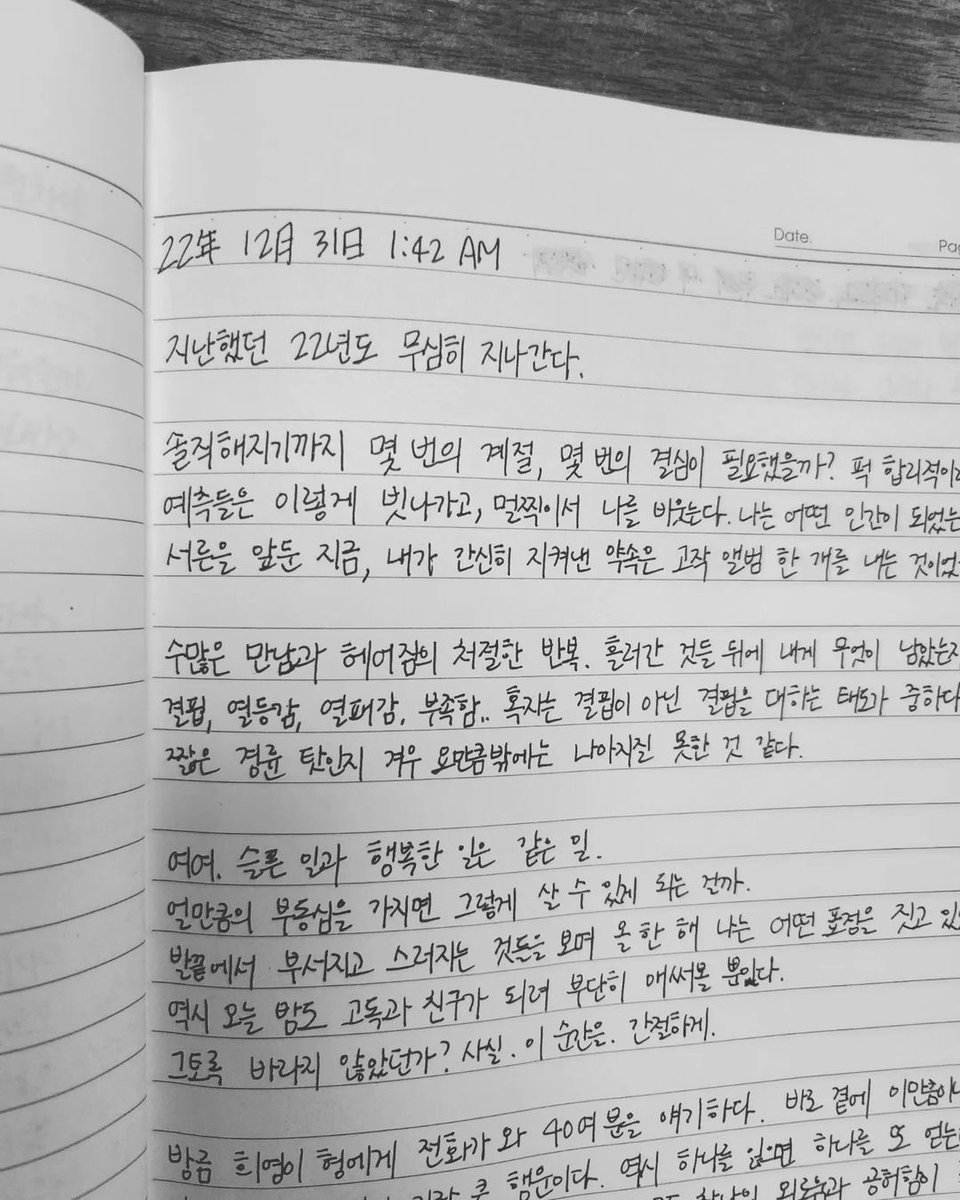 Date.
22年 12月 31日 1:42 AM
지난했던 22년도 무심히 지나간다.
솔직해지기까지 몇 번의 계절, 몇 번의 결심이 필요했을까? 퍽 합리적이라
예측들은 이렇게 빗나가고, 멀찍이서 나를 비웃는다. 나는 어떤 인간이 되었는
서른을 앞둔 지금, 내가 간신히 지켜낸 약속은 고작 앨범 한 개를 내는 것이었
수많은 만남과 헤어짐의 처절한 반복. 흘러간 것들 뒤에 내게 무엇이 남았는지
결핍, 열등감, 열패감, 부족함.. 혹자는 결핍이 아닌 결핍을 대하는 태도가 중하다
짧은 경륜 탓인지 겨우 요만큼밖에는 나아지질 못한 것 같다.
여여. 슬픈 일과 행복한 일은 같은 일.
얼만큼의 부동심을 가지면 그렇게 살 수 있게 되는 건까.
발끝에서 부서지고 스러지는 것들을 보며 올 한 해 나는 어떤 표정을 짓고 있
역시 오늘 밤도 고독과 친구가 되려 부단히 애써볼 뿐이다.
그토록 바라지 않았던가? 사실. 이 순간을. 간절하게.
방금 희영이 형에게 전화가 와 40여 분을 얘기하다. 바로 곁에 이만큼이나
큰 행운이다. 역시 하나를 잃으면 하나를 또 얻는
외로움과 공허함이